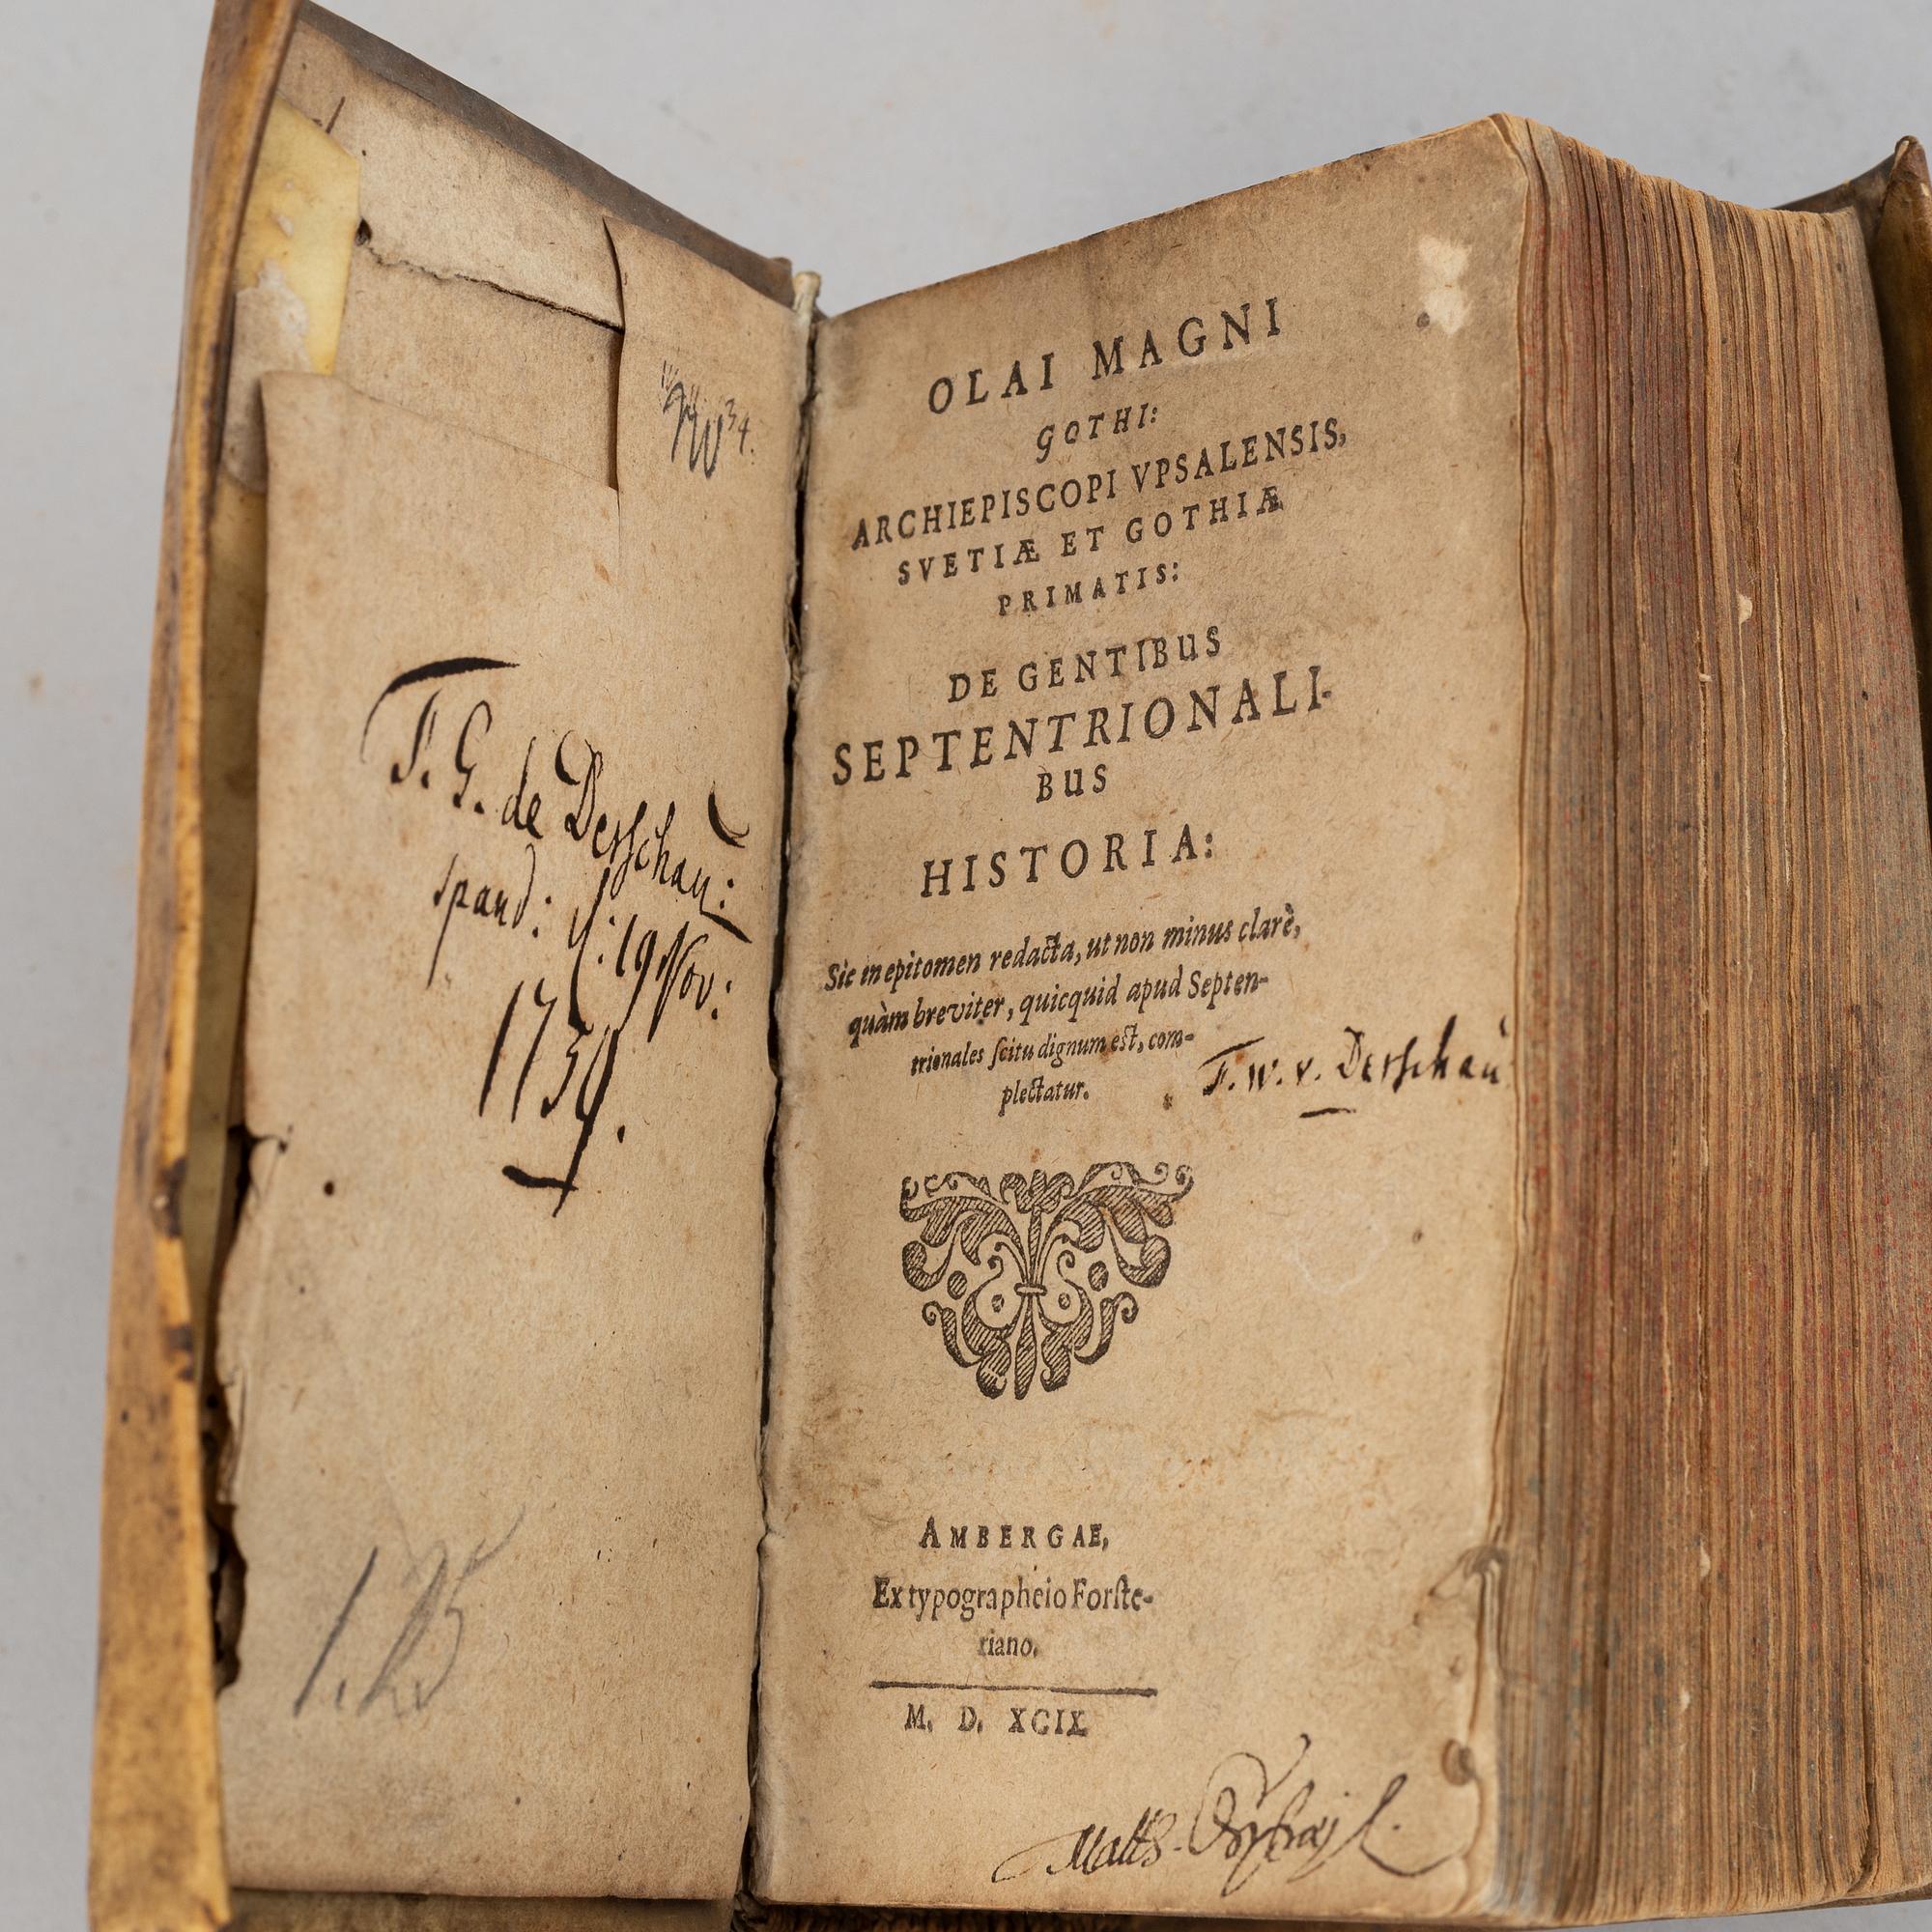 34.
F. G. de Derschau:
spand: d: 19 Nov:
1739.
1.25
OLAI MAGNI
GOTHI:
ARCHIEPISCOPI VPSALENSIS,
SVETIÆ ET GOTHIÆ
PRIMATIS:
DE GENTIBUS
SEPTENTRIONALI-
BUS
HISTORIA:
Sic in epitomen redacta, ut non minus clarè,
quàm breviter, quicquid apud Septen-
trionales ſcitu dignum est, com-
plectatur.
F. W. v. Derschau
AMBERGAE,
Ex typographeio Forſte-
riano.
M. D. XCIX
Matts